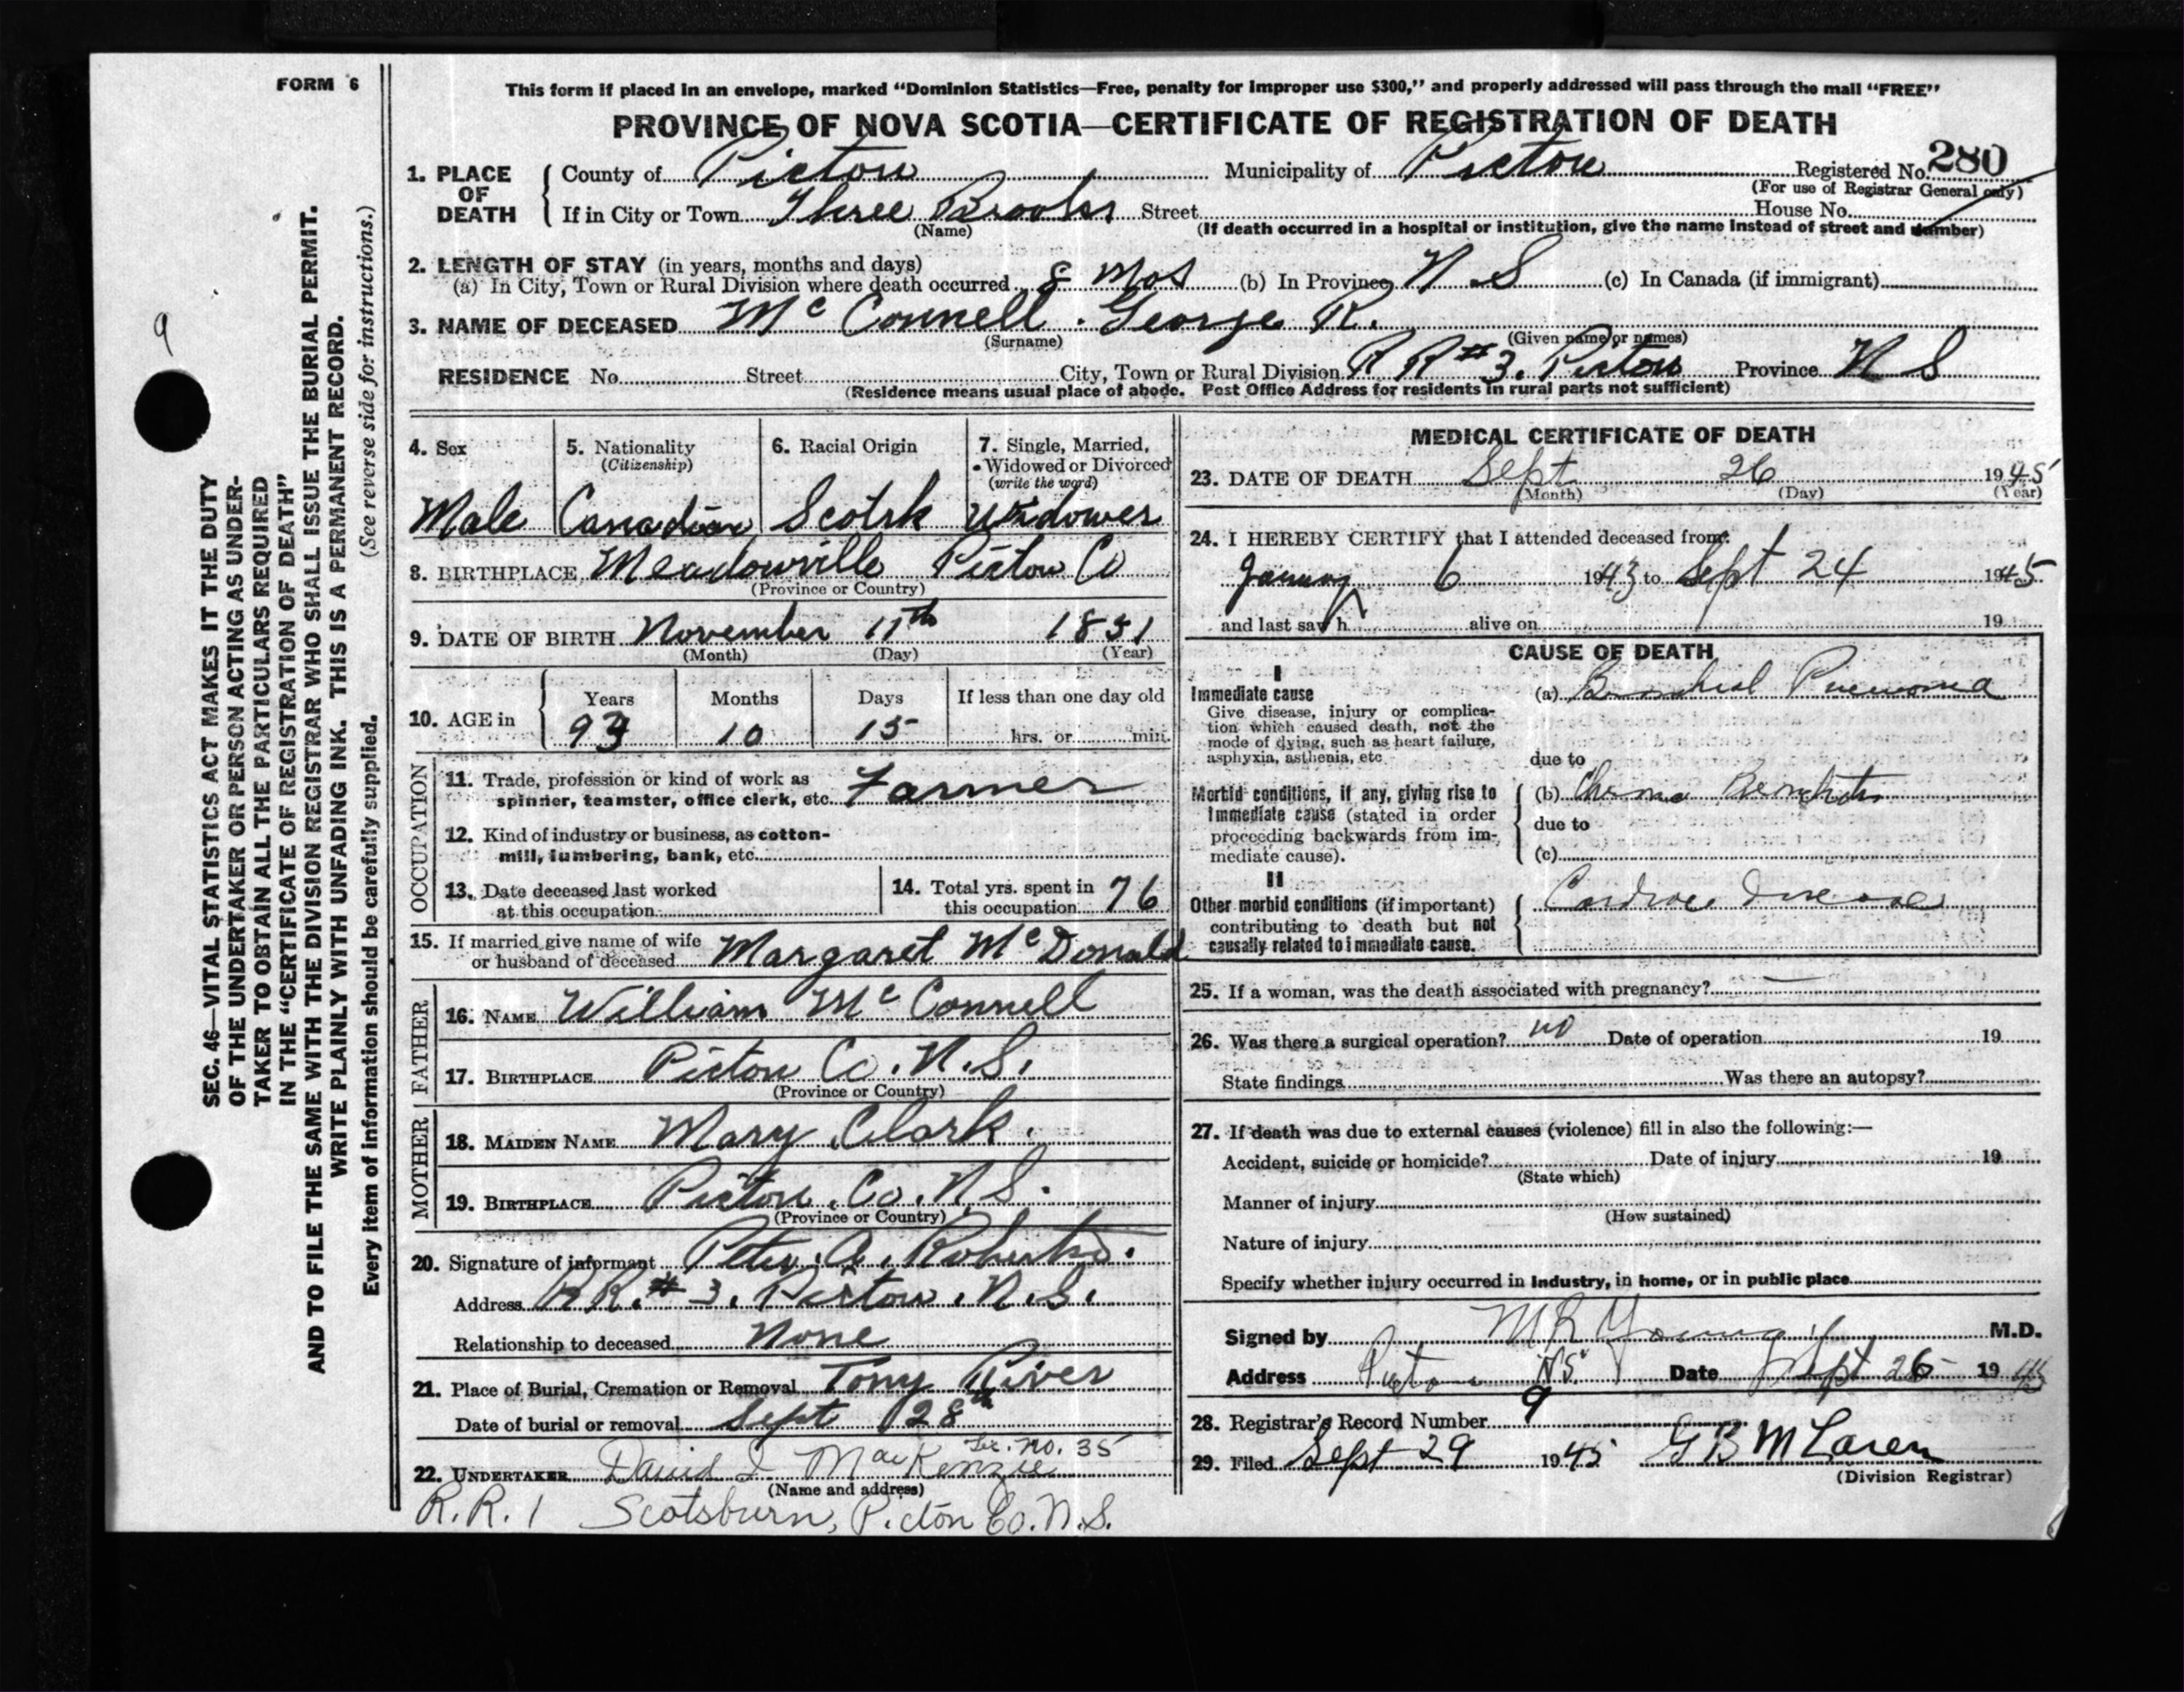 FORM 6
This form if placed in an envelope, marked "Dominion Statistics—Free, penalty for improper use $300," and properly addressed will pass through the mail "FREE"
PROVINCE OF NOVA SCOTIA—CERTIFICATE OF REGISTRATION OF DEATH
1. PLACE OF DEATH County of Pictou Municipality of Pictou Registered No. 280
(For use of Registrar General only)
If in City or Town Three Brooks Street House No.
(Name) (If death occurred in a hospital or institution, give the name instead of street and number)
2. LENGTH OF STAY (in years, months and days)
(a) In City, Town or Rural Division where death occurred 8 mos (b) In Province N.S (c) In Canada (if immigrant)
3. NAME OF DECEASED Mc Connell. George R.
(Surname) (Given name or names)
RESIDENCE No. Street City, Town or Rural Division R R #3. Pictou Province N S
(Residence means usual place of abode. Post Office Address for residents in rural parts not sufficient)
4. Sex 5. Nationality (Citizenship) 6. Racial Origin 7. Single, Married, Widowed or Divorced (write the word)
Male Canadian Scotch Widower
8. BIRTHPLACE Meadowville Pictou Co
(Province or Country)
9. DATE OF BIRTH November 11th 1851
(Month) (Day) (Year)
10. AGE in Years Months Days If less than one day old
93 10 15 hrs. or min.
OCCUPATION
11. Trade, profession or kind of work as
spinner, teamster, office clerk, etc. Farmer
12. Kind of industry or business, as cotton-
mill, lumbering, bank, etc.
13. Date deceased last worked
at this occupation
14. Total yrs. spent in
this occupation 76
15. If married give name of wife
or husband of deceased Margaret McDonald
FATHER
16. NAME William Mc Connell
17. BIRTHPLACE Pictou Co. N.S.
(Province or Country)
MOTHER
18. MAIDEN NAME Mary Clark.
19. BIRTHPLACE Pictou Co. N S.
(Province or Country)
20. Signature of informant Peter A.
Address R R. #3. Pictou. N.S.
Relationship to deceased None
21. Place of Burial, Cremation or Removal Tony River
Date of burial or removal Sept 28th
Lic. no. 35
22. UNDERTAKER David I MacKenzie
(Name and address)
R.R. 1 Scotsburn, Pictou Co. N.S.
MEDICAL CERTIFICATE OF DEATH
23. DATE OF DEATH Sept 26 1945
(Month) (Day) (Year)
24. I HEREBY CERTIFY that I attended deceased from:
January 6 1943 to Sept 24 1945
and last saw h alive on 19
CAUSE OF DEATH
I
Immediate cause
Give disease, injury or complica-
tion which caused death, not the
mode of dying, such as heart failure,
asphyxia, asthenia, etc
(a) Bronchial Pneumonia
due to
Morbid conditions, if any, giving rise to
immediate cause (stated in order
proceeding backwards from im-
mediate cause).
(b) Chronic Bronchitis
due to
(c)
II
Other morbid conditions (if important)
contributing to death but not
causally related to immediate cause.
Cardiac Disease
25. If a woman, was the death associated with pregnancy?
26. Was there a surgical operation? no Date of operation 19
State findings Was there an autopsy?
27. If death was due to external causes (violence) fill in also the following:—
Accident, suicide or homicide? Date of injury 19
(State which)
Manner of injury
(How sustained)
Nature of injury
Specify whether injury occurred in industry, in home, or in public place
Signed by M R Young M.D.
Address Pictou NS Date Sept 26 1945
28. Registrar's Record Number 9
29. Filed Sept 29 1945 G B McLaren
(Division Registrar)
9
SEC. 46—VITAL STATISTICS ACT MAKES IT THE DUTY
OF THE UNDERTAKER OR PERSON ACTING AS UNDER-
TAKER TO OBTAIN ALL THE PARTICULARS REQUIRED
IN THE "CERTIFICATE OF REGISTRATION OF DEATH"
AND TO FILE THE SAME WITH THE DIVISION REGISTRAR WHO SHALL ISSUE THE BURIAL PERMIT.
WRITE PLAINLY WITH UNFADING INK. THIS IS A PERMANENT RECORD.
Every item of information should be carefully supplied. (See reverse side for instructions.)